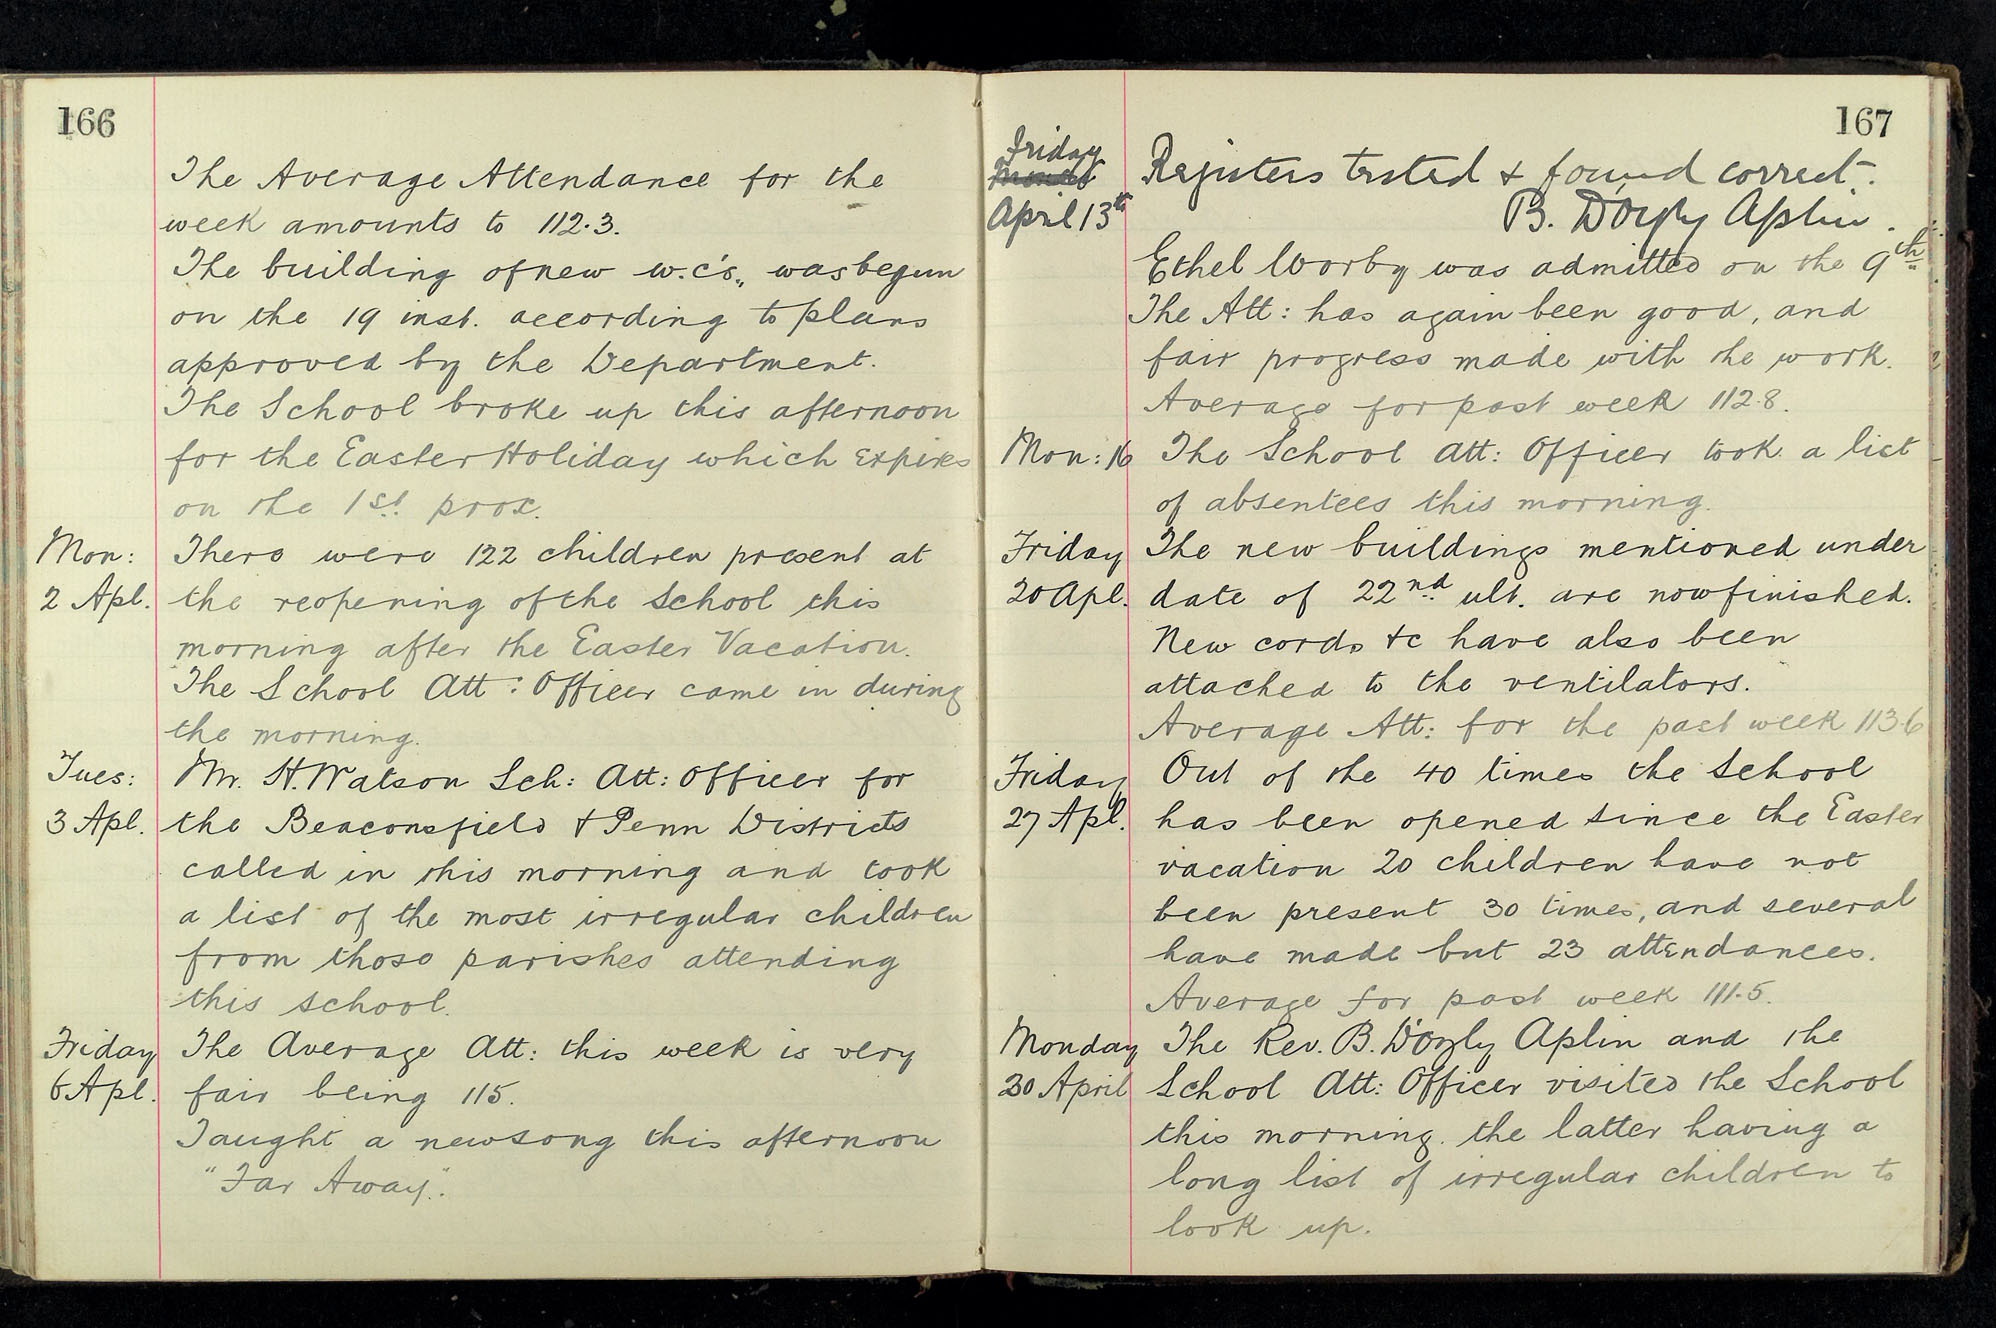 166
The Average Attendance for the
week amounts to 112.3.
The building of new w.c's., was begun
on the 19 inst. according to plans
approved by the Department.
The School broke up this afternoon
for the Easter Holiday which expires
on the 1st. prox.
Mon: There were 122 children present at
2 Apl. the reopening of the School this
morning after the Easter Vacation.
The School Att: Officer came in during
the morning.
Tues: Mr. H. Watson Sch: Att: Officer for
3 Apl. the Beaconsfield & Penn Districts
called in this morning and took
a list of the most irregular children
from those parishes attending
this school.
Friday The Average Att: this week is very
6 Apl. fair being 115.
Taught a new song this afternoon
"Far Away".
167
Friday
Registers tested & found correct.
April 13th B. D'Oyly Aplin.
Ethel Worby was admitted on the 9th
The Att: has again been good, and
fair progress made with the work.
Average for past week 112.8.
Mon: 16 The School Att: Officer took a list
of absentees this morning.
Friday The new buildings mentioned under
20 Apl. date of 22nd ult. are now finished.
New cords &c have also been
attached to the ventilators.
Average Att: for the past week 113.6
Friday Out of the 40 times the School
27 Apl. has been opened since the Easter
vacation 20 children have not
been present 30 times, and several
have made but 23 attendances.
Average for past week 111.5.
Monday The Rev. B. D'Oyly Aplin and the
30 April School Att: Officer visited the School
this morning. the latter having a
long list of irregular children to
look up.